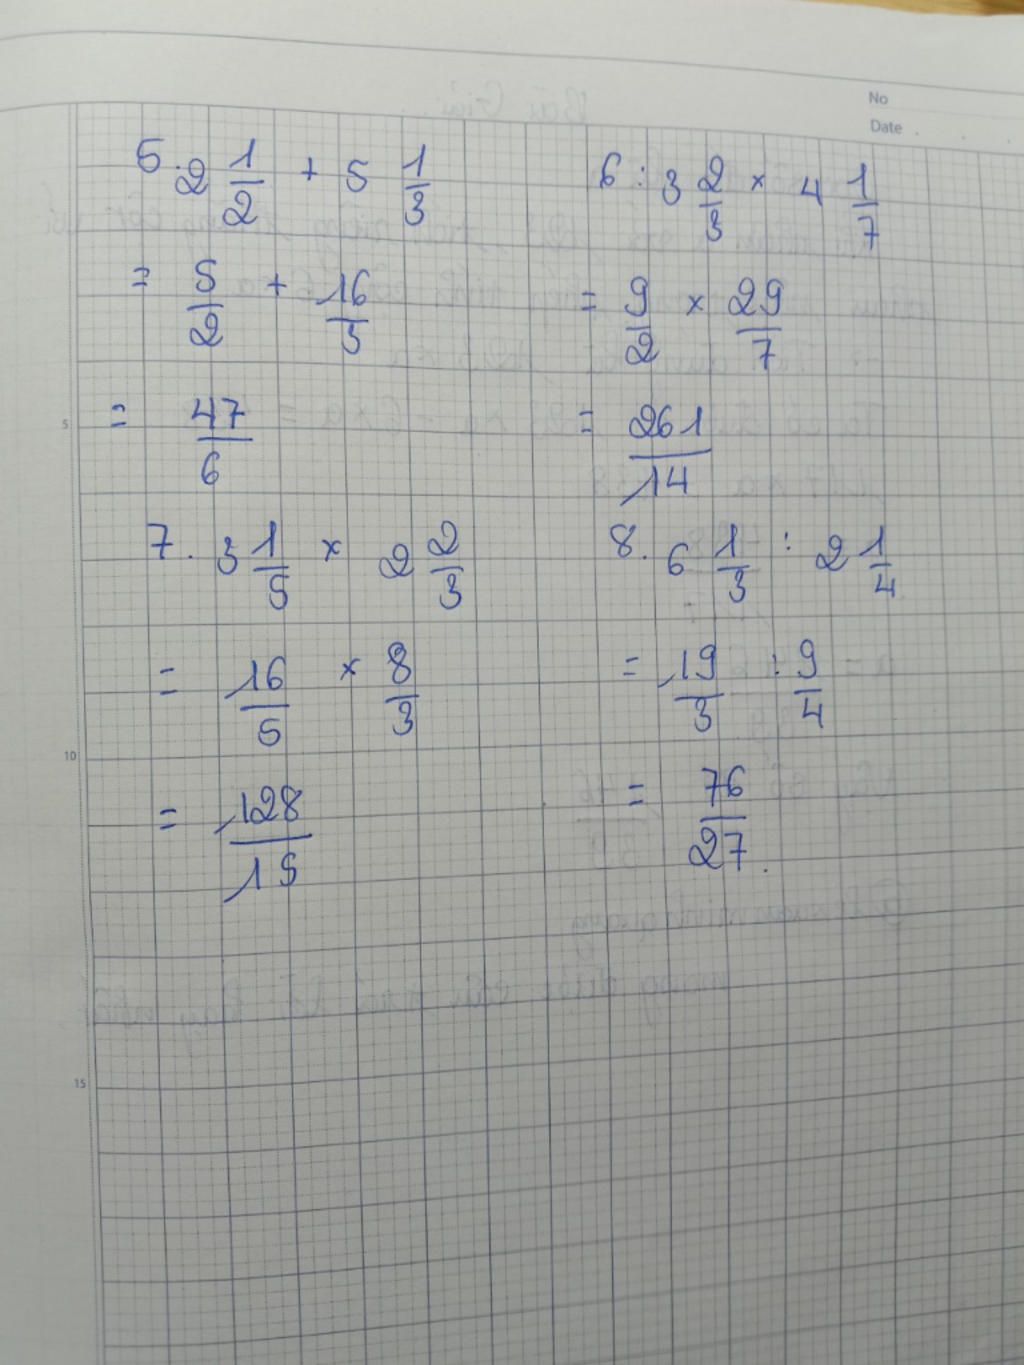 No
Date
5. 2 1/2 + 5 1/3
= 5/2 + 16/3
= 47/6
6: 3 2/3 × 4 1/7
= 9/2 × 29/7
= 261/14
7. 3 1/5 × 2 2/3
= 16/5 × 8/3
= 128/15
8. 6 1/3 : 2 1/4
= 19/3 : 9/4
= 76/27.
5
10
15